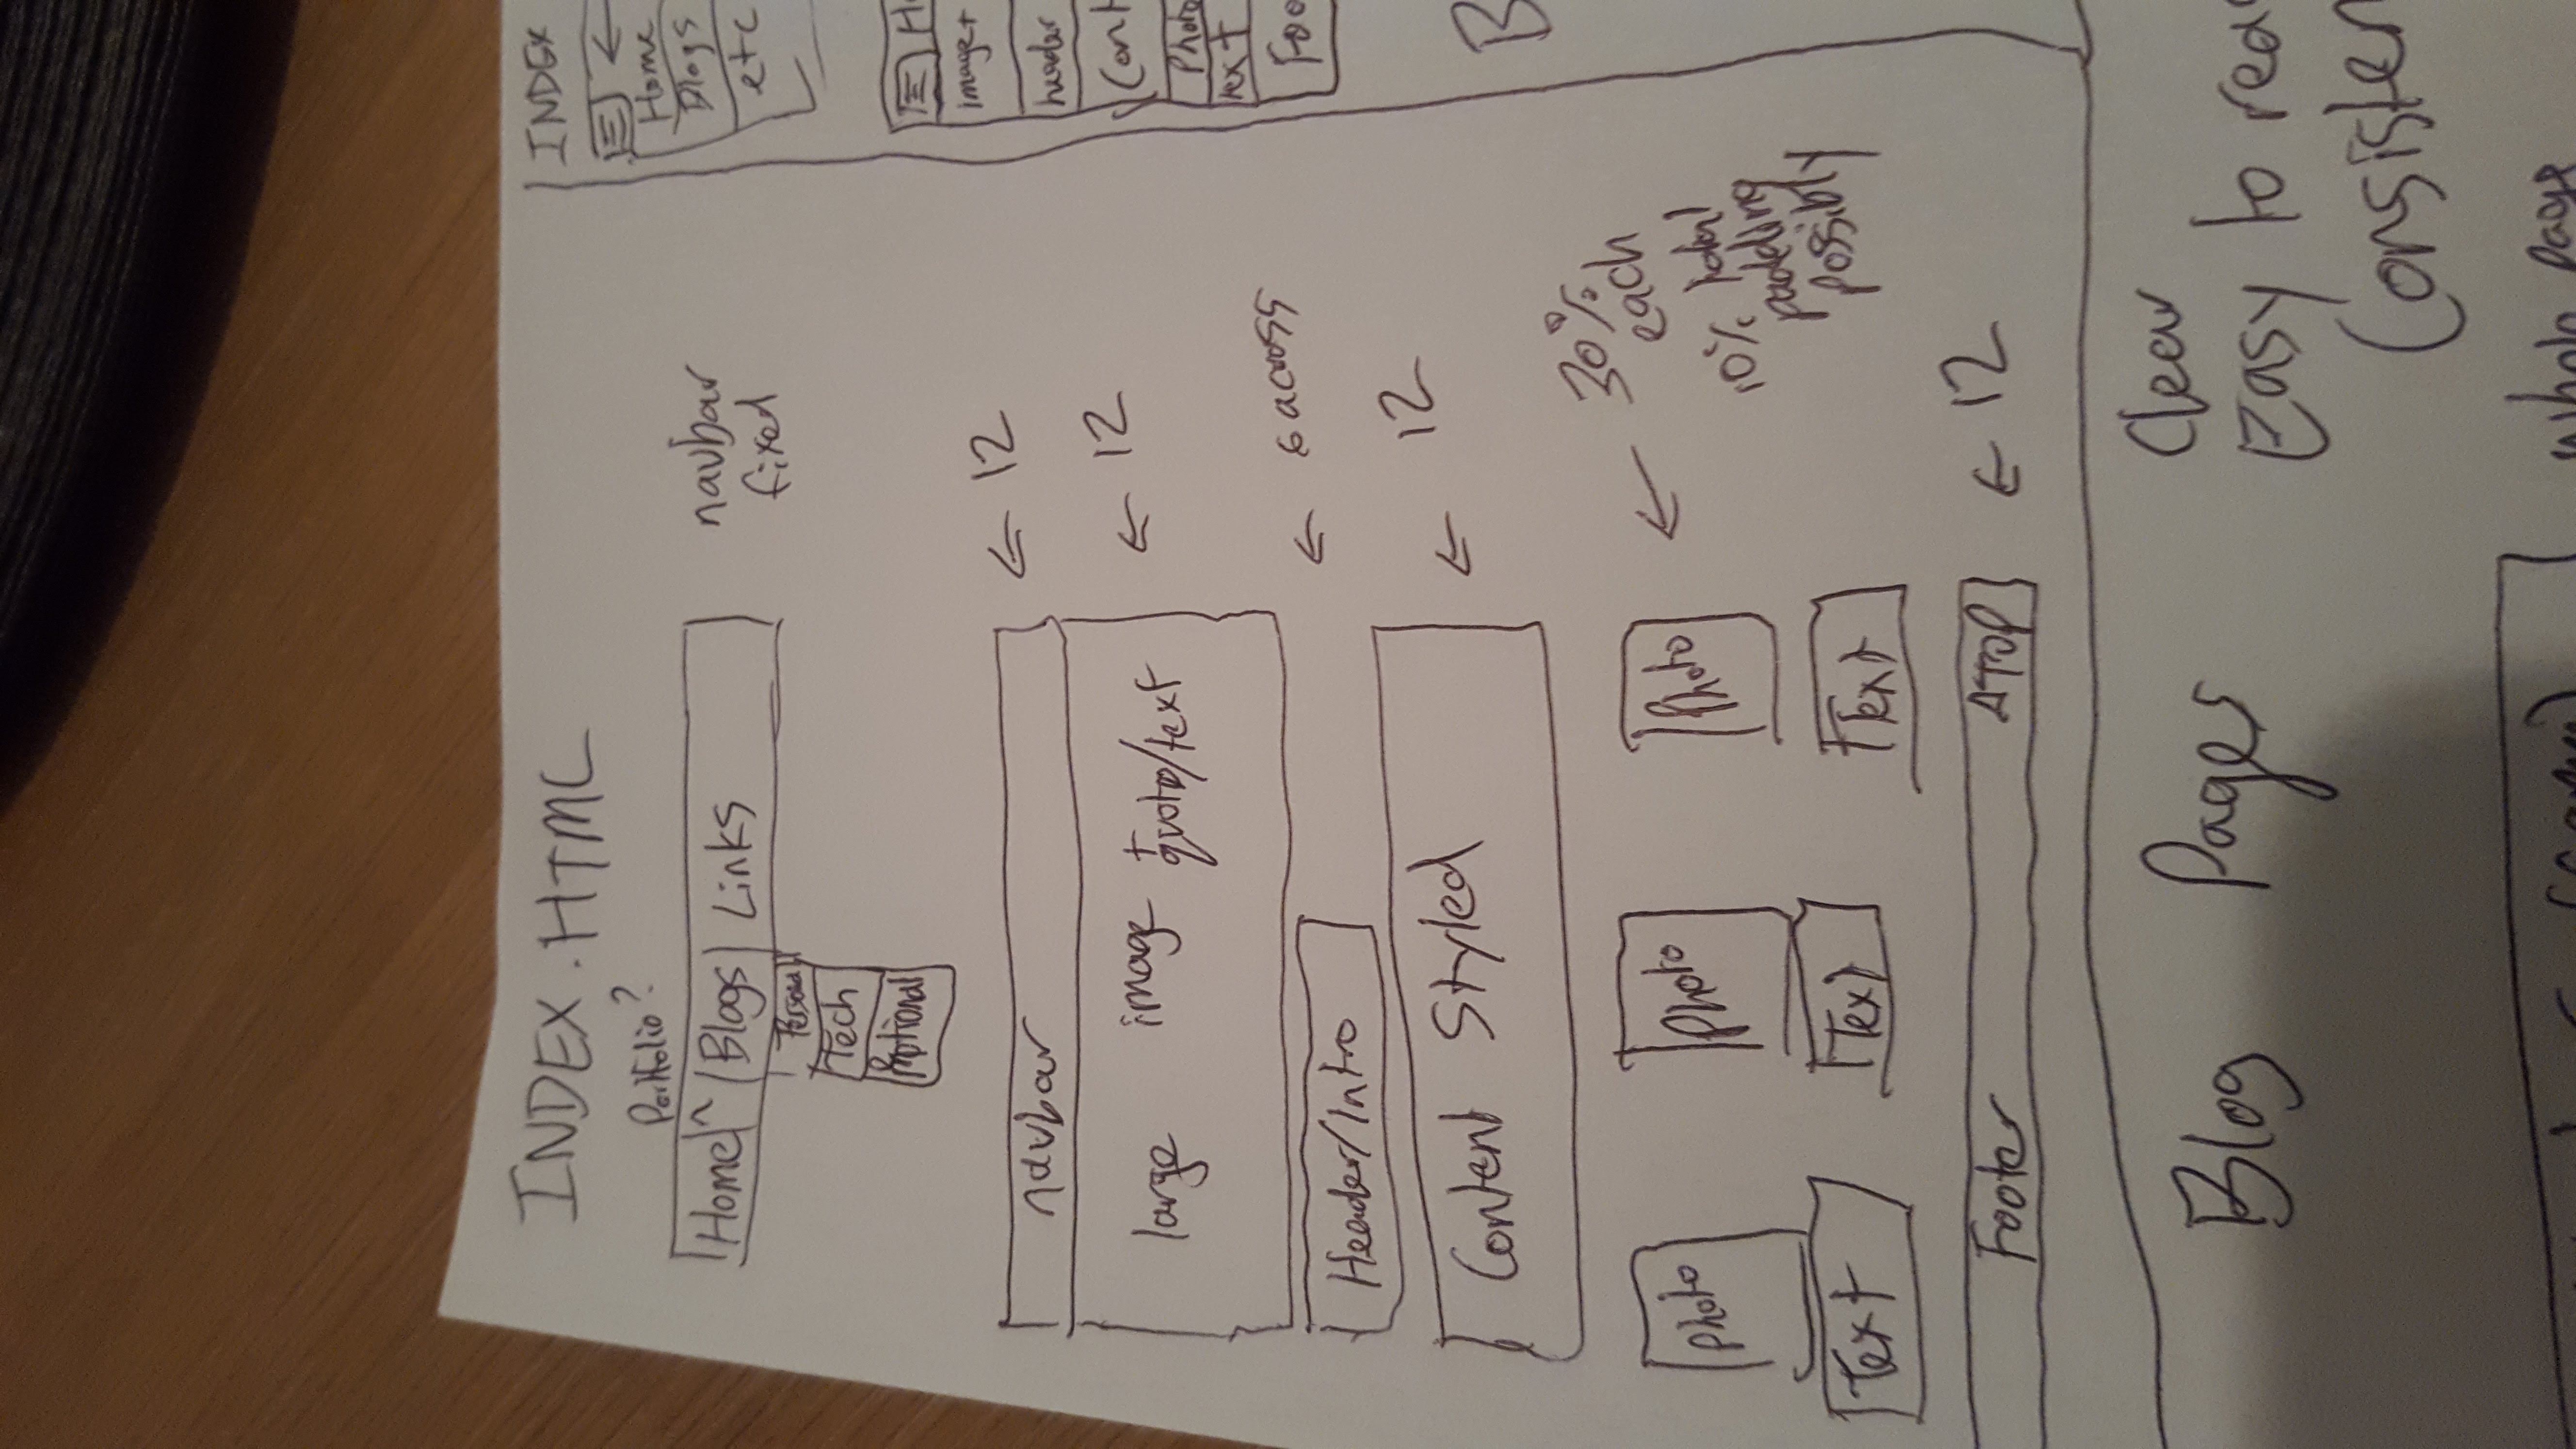 INDEX.HTML
Portfolio?
Home ^ Blogs Links
navbar
fixed
Personal
Tech
navbar
← 12
large image + quote/text
← 12
Header/Intro
← 6 across
Content Styled
← 12
Photo Photo Photo
← 30%
each
10% total
padding
possibly
Text Text Text
Footer
TOP
← 12
INDEX
←
Home
Blogs
etc
H
image+
header
Cont
Photo
text
Foo
B
Blog Pages
Clear
Easy to read
Consisten
whole page